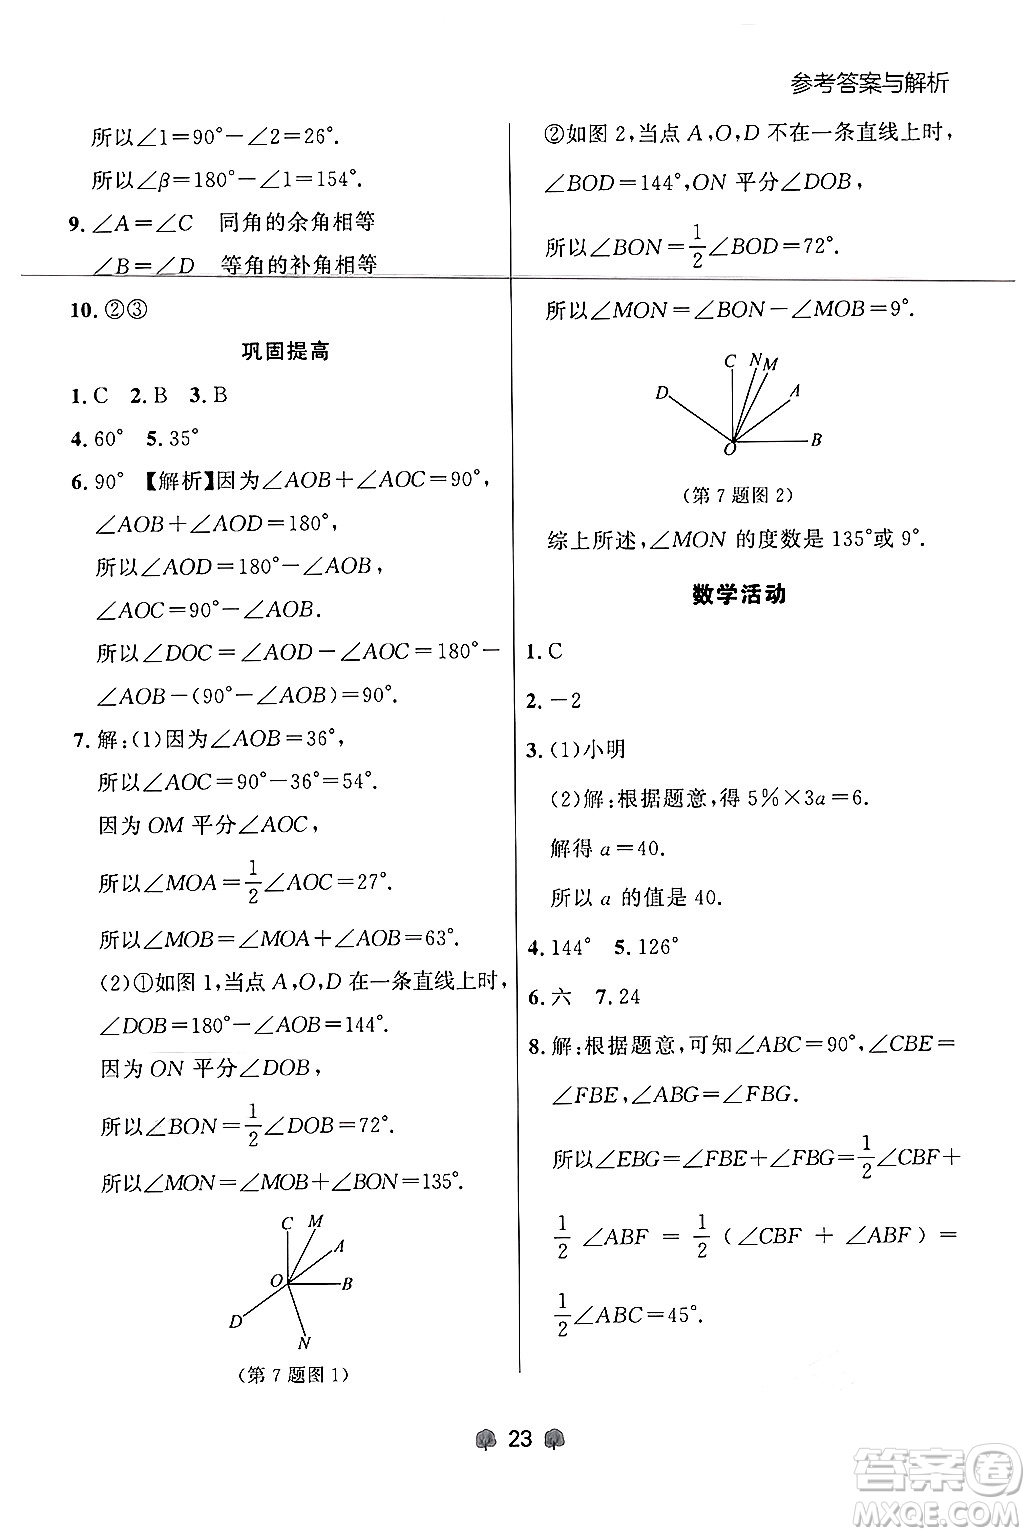 参考答案与解析
所以∠1=90°-∠2=26°.
所以∠β=180°-∠1=154°.
9. ∠A=∠C 同角的余角相等
∠B=∠D 等角的补角相等
10. ②③
巩固提高
1. C 2. B 3. B
4. 60° 5. 35°
6. 90° 【解析】因为∠AOB+∠AOC=90°,
∠AOB+∠AOD=180°,
所以∠AOD=180°-∠AOB,
∠AOC=90°-∠AOB.
所以∠DOC=∠AOD-∠AOC=180°-
∠AOB-(90°-∠AOB)=90°.
7. 解:(1)因为∠AOB=36°,
所以∠AOC=90°-36°=54°.
因为 OM 平分∠AOC,
所以∠MOA=1/2∠AOC=27°.
所以∠MOB=∠MOA+∠AOB=63°.
(2)①如图 1,当点 A,O,D 在一条直线上时,
∠DOB=180°-∠AOB=144°.
因为 ON 平分∠DOB,
所以∠BON=1/2∠DOB=72°.
所以∠MON=∠MOB+∠BON=135°.
C M
A
O B
D
N
(第 7 题图 1)
②如图 2,当点 A,O,D 不在一条直线上时,
∠BOD=144°,ON 平分∠DOB,
所以∠BON=1/2∠BOD=72°.
所以∠MON=∠BON-∠MOB=9°.
C N M
D A
O B
(第 7 题图 2)
综上所述,∠MON 的度数是 135°或 9°.
数学活动
1. C
2. -2
3. (1)小明
(2)解:根据题意,得 5%×3a=6.
解得 a=40.
所以 a 的值是 40.
4. 144° 5. 126°
6. 六 7. 24
8. 解:根据题意,可知∠ABC=90°,∠CBE=
∠FBE,∠ABG=∠FBG.
所以∠EBG=∠FBE+∠FBG=1/2∠CBF+
1/2∠ABF=1/2(∠CBF+∠ABF)=
1/2∠ABC=45°.
23
答案圈
MXQE.COM